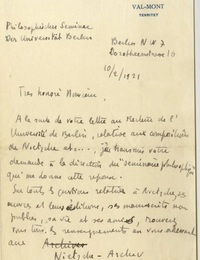 VAL-MONT
TERRITET
Philosophisches Seminar
Der Universität Berlin
Berlin N.W.7
Dorotheenstrasse 6
10/2/1931
Très honoré Monsieur,
A la suite de votre lettre au Recteur de l'
Université de Berlin, relative aux compositions
de Nietzsche etc..., j'ai transmis votre
demande à la direction du "seminaire philosophique"
qui m'a donné cette réponse.
Sur tout les questions relatives à Nietzsche, ses
œuvres et leurs éditions, ses manuscrits non
publiés, sa vie et ses amis, trouverez
vous tous les renseignements en vous adressant
aux Archives
Nietzsche-Archiv